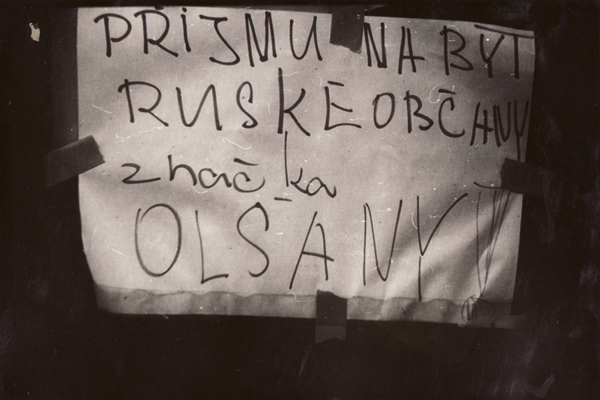 PŘIJMU NA BYT
RUSKÉ OBČANY
značka
OLŠANY!!